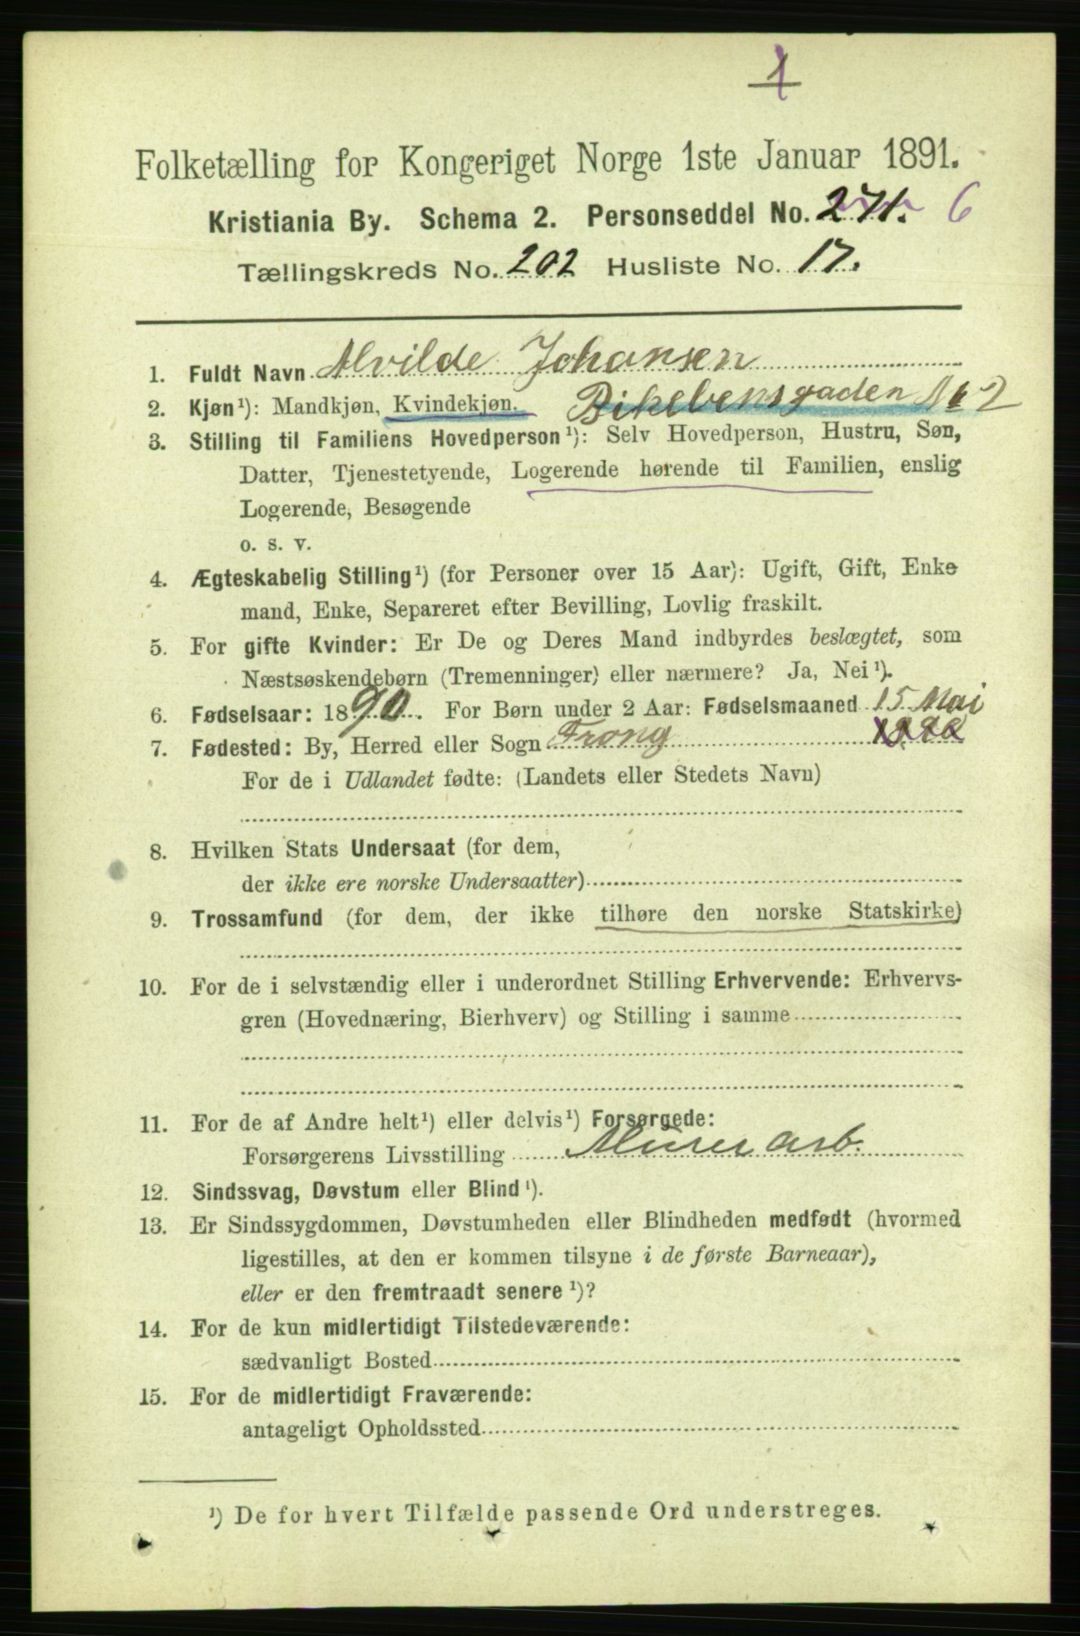 1
Folketælling for Kongeriget Norge 1ste Januar 1891.
Kristiania By. Schema 2. Personseddel No. 271. 6
Tællingskreds No. 202 Husliste No. 17.
1. Fuldt Navn Alvilde Johansen
2. Kjøn¹): Mandkjøn, Kvindekjøn. Birkebensgaden No 2
3. Stilling til Familiens Hovedperson¹): Selv Hovedperson, Hustru, Søn,
Datter, Tjenestetyende, Logerende hørende til Familien, enslig
Logerende, Besøgende
o. s. v.
4. Ægteskabelig Stilling¹) (for Personer over 15 Aar): Ugift, Gift, Enke
mand, Enke, Separeret efter Bevilling, Lovlig fraskilt.
5. For gifte Kvinder: Er De og Deres Mand indbyrdes beslægtet, som
Næstsøskendebørn (Tremenninger) eller nærmere? Ja, Nei¹).
6. Fødselsaar: 1890. For Børn under 2 Aar: Fødselsmaaned 15 Mai
7. Fødested: By, Herred eller Sogn Frong
For de i Udlandet fødte: (Landets eller Stedets Navn)
8. Hvilken Stats Undersaat (for dem,
der ikke ere norske Undersaatter)
9. Trossamfund (for dem, der ikke tilhøre den norske Statskirke)
10. For de i selvstændig eller i underordnet Stilling Erhvervende: Erhvervs-
gren (Hovednæring, Bierhverv) og Stilling i samme
11. For de af Andre helt¹) eller delvis¹) Forsørgede:
Forsørgerens Livsstilling Murer arb.
12. Sindssvag, Døvstum eller Blind¹).
13. Er Sindssygdommen, Døvstumheden eller Blindheden medfødt (hvormed
ligestilles, at den er kommen tilsyne i de første Barneaar),
eller er den fremtraadt senere¹)?
14. For de kun midlertidigt Tilstedeværende:
sædvanligt Bosted
15. For de midlertidigt Fraværende:
antageligt Opholdssted
¹) De for hvert Tilfælde passende Ord understreges.